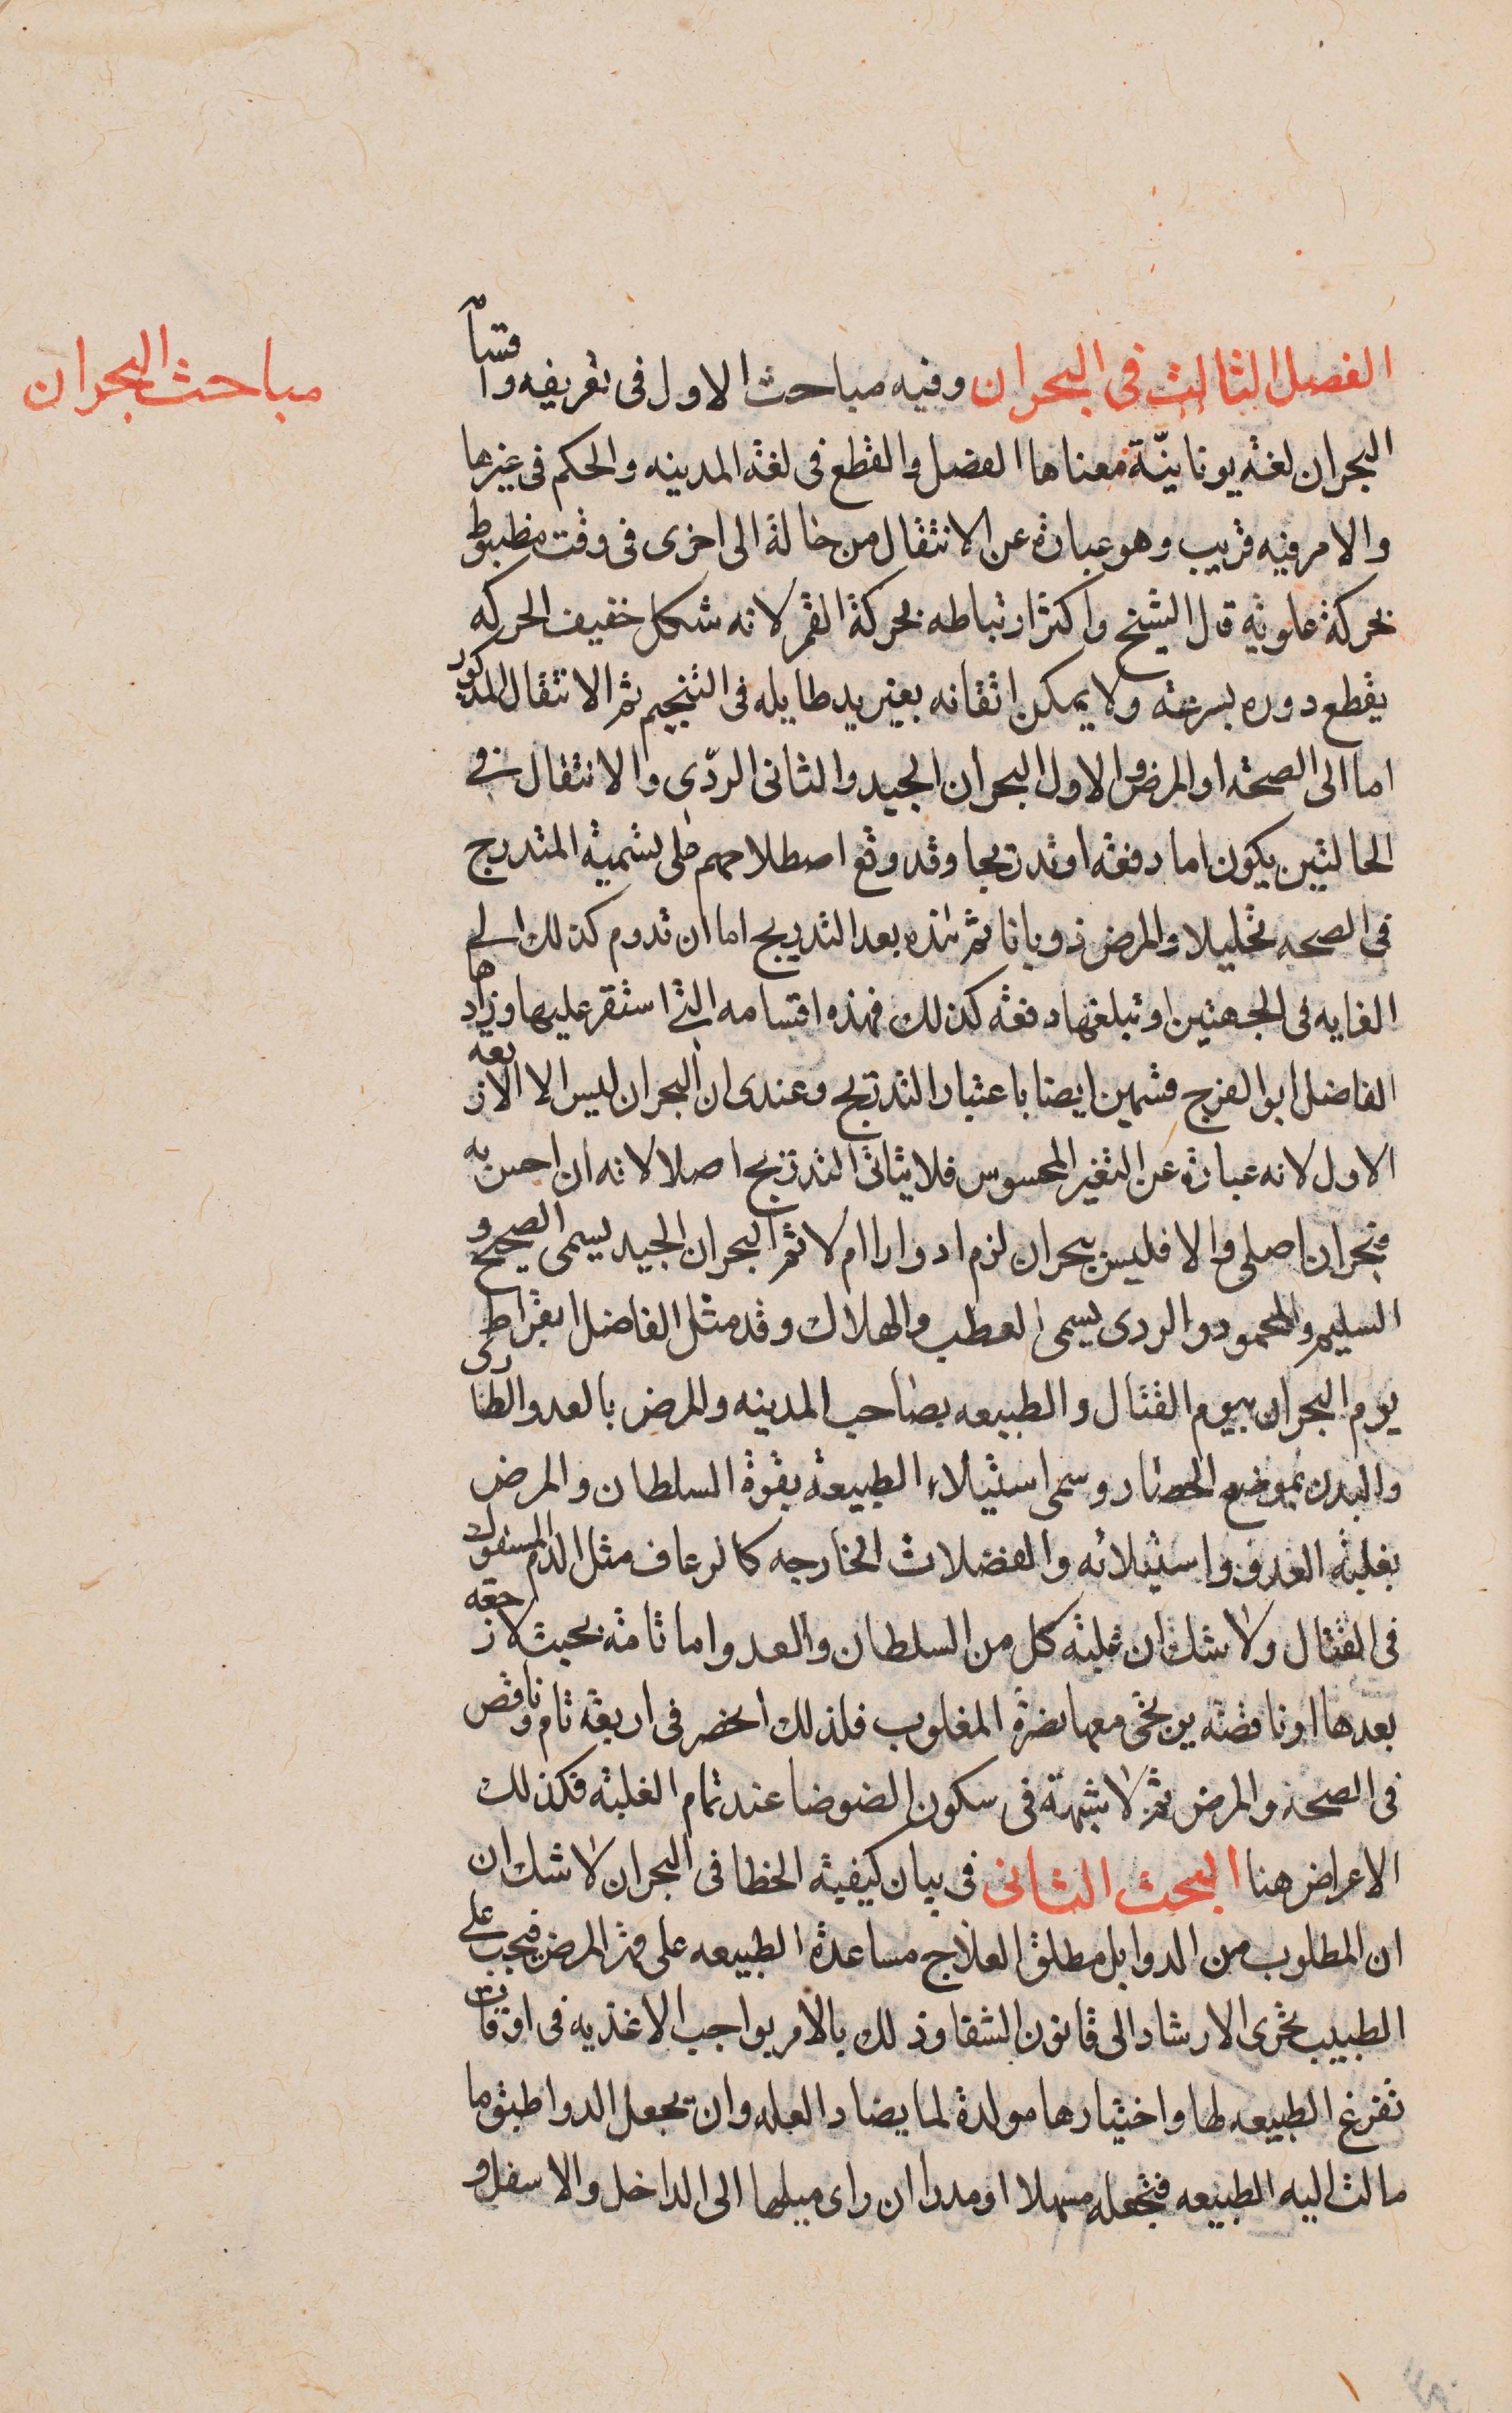 مباحث البحران
الفصل الثالث فى البحران وفيه مباحث الاول فى تعريفه واقسامه
البحران لغة يونانيّة معناها الفصل والقطع فى لغة المدينه والحكم فى غيرها
والامر فيه قريب وهو عبارة عن الانتقال من حالة الى اخرى فى وقت مظبوط
بحركة علوية قال الشيخ واكثر ارتباطه بحركة القمر لانه شكل خفيف الحركه
يقطع دوره بسرعة ولا يمكن اتقانه بغير يد طايله فى التنجيم ثم الانتقال المذكور
اما الى الصحة او المرض والاول البحران الجيد والثانى الردّى والانتقال فى
الحالتين يكون اما دفعة او تدريجا وقد وقع اصطلاحهم على تسمية المتدرج
فى الصحه تحليلا والمرض ذوبانا ثم هذه بعد التدريج اما ان تدوم كذلك الى
الغايه فى الجهتين او تبلغها دفعة كذلك فهذه اقسامه التى استقر عليها وزادها
الفاضل ابو الفرج قسمين ايضا باعتبار التدريج وعندى ان البحران ليس الا الاربعه
الاول لانه عبارة عن التغير المحسوس فلا يتاتى التدريج اصلا لانه ان احس به
فبحران اصلى والا فليس ببحران لزم ادوارا ام لا ثم البحران الجيد يسمى الصحيح و
السليم والمحمود والردى يسمى العطب والهلاك وقد مثل الفاضل ابقراط
يوم البحران بيوم القتال والطبيعه بصاحب المدينه والمرض بالعدو الطارى
والبدن بموضع الحصار وسمى استيلاء الطبيعة بقوة السلطان والمرض
بغلبة العدو واستيلائه والفضلات الخارجه كالرعاف مثل الدم المسفوك
فى القتال ولا شك ان غلبة كل من السلطان والعدو اما تامة بحيث لا رجعه
بعدها او ناقصة يرتجى معها نصرة المغلوب فلذلك انحصر فى اربعة تام وناقص
فى الصحة والمرض ثم لا شبهة فى سكون الضوضا عند تمام الغلبة فكذلك
الاعراض هنا البحث الثانى فى بيان كيفية الخطا فى البحران لا شك ان
ان المطلوب من الدوا بل مطلق العلاج مساعدة الطبيعه على قهر المرض فيجب على
الطبيب تحرى الارشاد الى قانون الشفا وذلك بالامر بواجب الاغذيه فى اوقات
تفرغ الطبيعه لها واختيارها مولدة لما يضاد العله وان يجعل الدوا طبق ما
مالت اليه الطبيعه فتجعله مسهلا او مدرا ان راى ميلها الى الداخل والاسفل و